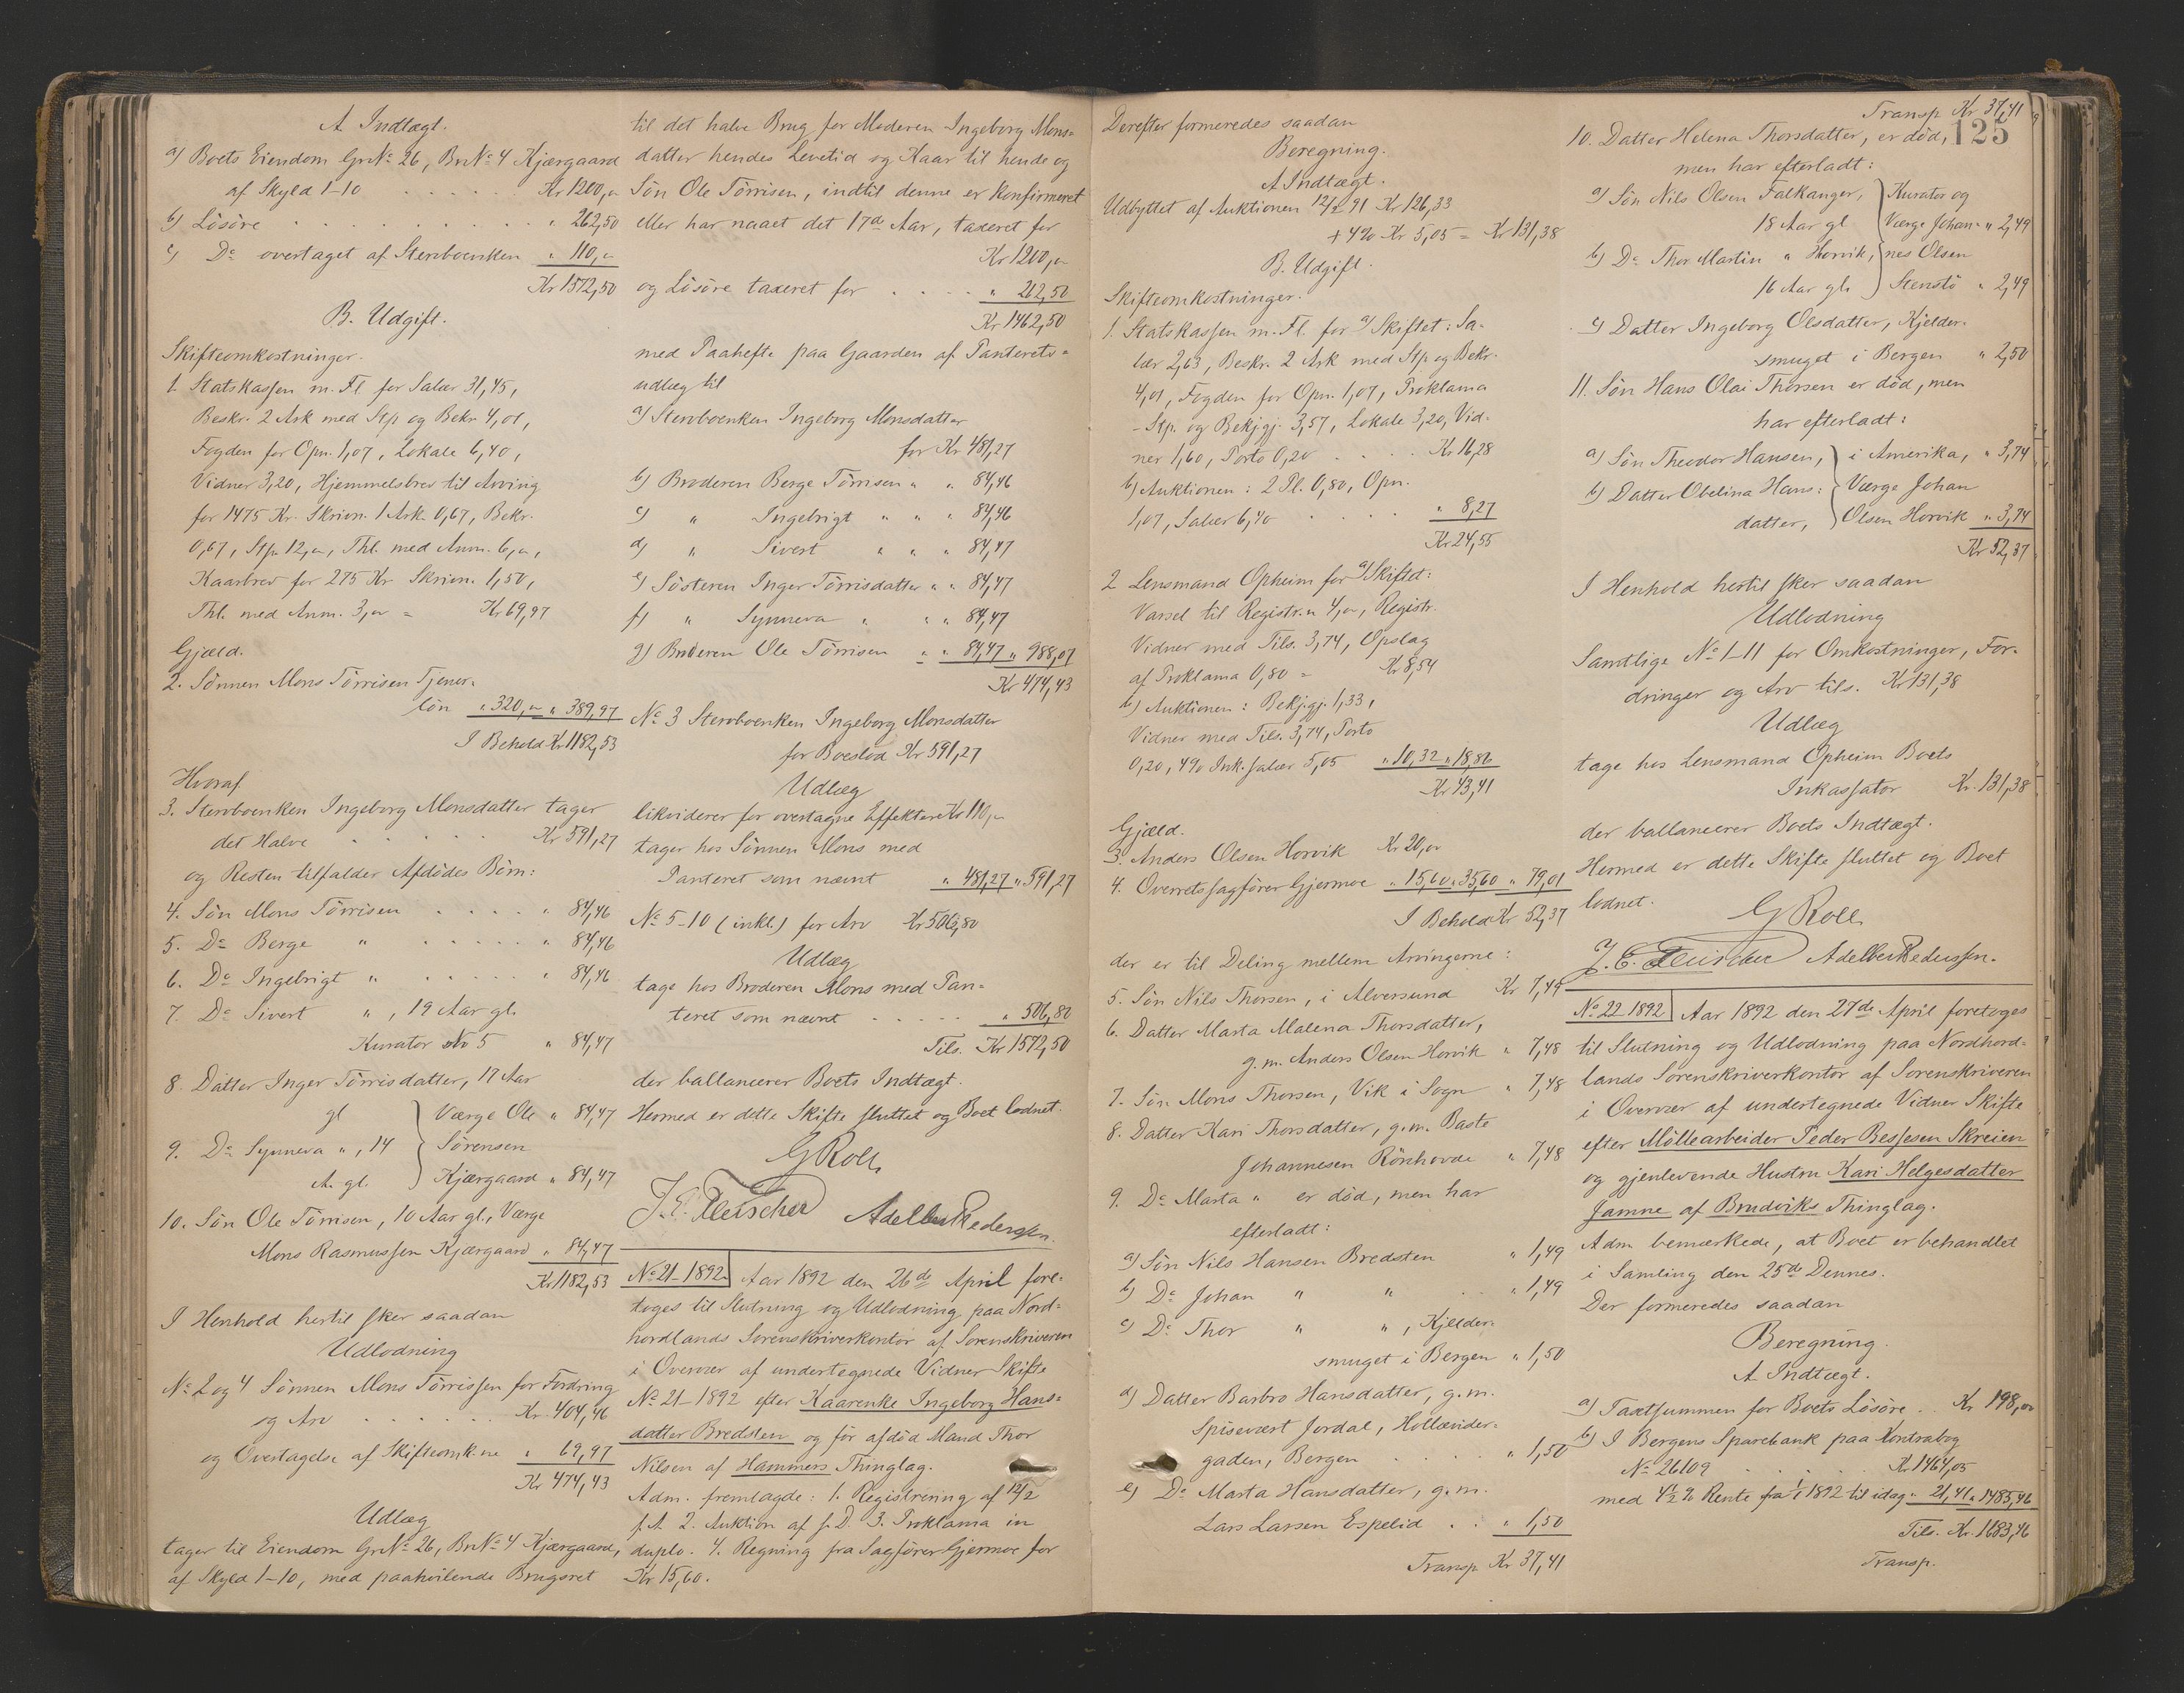 A Indtægt.
a) Boets Eiendom Gr№ 26, Br№ 4 Kjærgaard
af Skyld 1-10 . . . . . Kr 1200,„
b) Lösöre . . . . . . . . . „ 262,50
c) Do overtaget af Stervboenken „ 110,„
Kr 1572,50
B. Udgift.
Skifteomkostninger.
1. Statskassen m. Fl for Salær 31,45,
Beskr. 2 Ark med Stp og Bekr. 4,01,
Fogden for Opn. 1,07, Lokale 6,40,
Vidner 3,20, Hjemmelsbrev til Arving
for 1475 Kr. Skrivn. 1 Ark 0,67, Bekr.
0,67, Stp. 12,„, Thl. med Anm. 6,„,
Kaarbrev for 275 Kr Skrivn. 1,50,
Thl. med Anm. 3,„ = Kr 69,97
Gjæld.
2. Sönnen Mons Törrisen Tjener-
lön „ 320,„ „ 389,97
I Behold Kr 1182,53
Hvoraf
3. Stervboenken Ingeborg Monsdatter tager
det Halve . . . . . Kr 591,27
og Resten tilfalder Afdödes Börn:
4. Sön Mons Törrisen . . . . „ 84,46
5. Do Berge „ . . . . . „ 84,46
6. Do Ingebrigt „ . . . . . „ 84,46
7. Do Sivert „ , 19 Aar gl.
Kurator No 5 „ 84,47
8. Datter Inger Törrisdatter, 17 Aar
gl } Værge Ole „ 84,47
9. Do Synneva „ , 14 } Sörensen
A. gl. } Kjærgaard „ 84,47
10. Sön Ole Törrisen, 10 Aar gl., Værge
Mons Rasmussen Kjærgaard „ 84,47
Kr 1182,53
I Henhold hertil sker saadan
Udlodning
№ 2 og 4 Sönnen Mons Törrissen for Fordring
og Arv . . . . . . Kr. 404,46
og Overtagelse af Skifteomk.ne „ 69,97
Kr 474,43
Udlæg
tager til Eiendom Gr№ 26, Br№ 4 Kjærgaard,
af Skyld 1-10, med paahvilende Brugsret
til det halve Brug for Moderen Ingeborg Mons=
datter hendes Levetid og Kaar til hende og
Sön Ole Törrisen, indtil denne er konfirmeret
eller har naaet det 17de Aar, taxeret for
Kr 1200,„
og Lösöre taxeret for . . . . „ 262,50
Kr 1462,50
med Paahefte paa Gaarden af Panterets=
udlæg til
a) Stervboenken Ingeborg Monsdatter
for Kr 481,27
b) Broderen Berge Törrisen „ „ 84,46
c) „ Ingebrigt „ „ „ 84,46
d) „ Sivert „ „ „ 84,47
e) Sösteren Inger Törrisdatter „ „ 84,47
f) „ Synneva „ „ „ 84,47
g) Broderen Ole Törrisen „ „ 84,47 „ 988,07
Kr 474,43
№ 3 Stervboenken Ingeborg Monsdatter
for Boeslod Kr 591,27
Udlæg
likviderer for overtagne Effekter Kr 110,„
tager hos Sönnen Mons med
Panteret som nævnt „ 481,27 „ 591,27
№ 5-10 (inkl.) for Arv Kr 506,80
Udlæg
tage hos Broderen Mons med Pan=
teret som nævnt . . . . . „ 506,80
Tils. Kr 1572,50
der ballancerer Boets Indtægt.
Hermed er dette Skifte sluttet og Boet lodnet.
G Roll
J. E. Fleischer Adelbert Pedersen.
№ 21-1892. Aar 1892 den 26de April fore-
toges til Slutning og Udlodning paa Nord=
hordlands Sorenskriverkontor af Sorenskriveren
i Overvær af undertegnede Vidner Skifte
№ 21-1892 efter Kaarenke Ingeborg Hans=
datter Bredsten og för afdöd Mand Thor
Nilsen af Hammers Thinglag.
Adm. fremlagde: 1. Registrering af 12/2
f. A 2. Auktion af s. D. 3. Proklama in
duplo. 4. Regning fra Sagförer Gjermoe for
Kr 15,60.
Derefter formeredes saadan
Beregning.
A Indtægt.
Udbyttet af Auktionen 12/2 91 Kr 126,33
+ 4% Kr 5,05 = Kr 131,38
B. Udgift.
Skifteomkostninger.
1. Statskassen m. Fl. for a) Skiftet: Sa-
lær 2,63, Beskr. 2 Ark med Stp og Bekr.
4,01, Fogden for Opn. 1,07, Proklama
- Stp. og Bekjgj. 3,57, Lokale 3,20, Vid-
ner 1,60, Porto 0,20 . . . . Kr 16,28
b) Auktionen: 2 Pl. 0,80, Opn.
1,07, Salær 6,40 . . . . „ 8,27
Kr 24,55
2 Lensmand Opheim for a) Skiftet:
Varsel til Registr.n 4,„, Registr.
Vidner med Tils. 3,74, Opslag
af Proklama 0,80 = Kr 8,54
b) Auktionen: Bekjgj. 1,33,
Vidner med Tils. 3,74, Porto
0,20, 4% Ink. salær 5,05 „ 10,32 „ 18,86
Kr 43,41
Gjæld.
3. Anders Olsen Horvik Kr 20,„
4. Overretssagförer Gjermoe „ 15,60 „ 35,60 „ 79,01
I Behold Kr 52,37
der er til Deling mellem Arvingerne:
5. Sön Nils Thorsen, i Alversund Kr 7,49
6. Datter Marta Malena Thorsdatter,
g. m. Anders Olsen Horvik „ 7,48
7. Sön Mons Thorsen, Vik i Sogn „ 7,48
8. Datter Kari Thorsdatter, g. m. Baste
Johannesen Rönhovde „ 7,48
9. Do Marta „ er död, men har
efterladt:
a) Sön Nils Hansen Bredsten „ 1,49
b) Do Johan „ „ . . „ 1,49
c) Do Thor „ „ , Kjelder-
smuget i Bergen „ 1,50
d) Datter Barbro Hansdatter, g. m.
Spisevært Jordal, Hollænder-
gaden, Bergen . . . . „ 1,50
e) Do Marta Hansdatter, g. m.
Lars Larsen Espelid . . „ 1,50
Transp Kr 37,41
Transp Kr 37,41
125
10. Datter Helena Thorsdatter, er död,
men har efterladt:
a) Sön Nils Olsen Falkanger, } Kurator og
18 Aar gl } Værge Johan- „ 2,49
b) Do Thor Martin „ Horvik, } nes Olsen
16 Aar gl. } Stenstö „ 2,49
c) Datter Ingeborg Olsdatter, Kjelder-
smuget i Bergen „ 2,50
11. Sön Hans Olai Thorsen er död, men
har efterladt:
a) Sön Theodor Hansen, } i Amerika, „ 3,74
b) Datter Obelina Hans: } Værge Johan
datter, } Olsen Horvik „ 3,74
Kr 52,37
I Henhold hertil sker saadan
Udlodning
Samtlige № 1-11 for Omkostninger, For-
dringer og Arv tils. Kr 131,38
Udlæg
tage hos Lensmand Opheim Boets
Inkassator Kr. 131,38
der ballancerer Boets Indtægt.
Hermed er dette Skifte sluttet og Boet
lodnet.
G Roll
J. E. Fleischer Adelbert Pedersen.
№ 22 1892 Aar 1892 den 27de April foretoges
til Slutning og Udlodning paa Nordhord-
lands Sorenskriverkontor af Sorenskriveren
i Overvær af undertegnede Vidner Skifte
efter Möllearbeider Peder Bessesen Skreien
og gjenlevende Hustru Kari Helgesdatter
Jamne af Brudviks Thinglag.
Adm. bemærkede, at Boet er behandlet
i Samling den 25de Dennes.
Der formeredes saadan
Beregning.
A Indtægt.
a) Taxtsummen for Boets Lösöre . . Kr 198,„
b) I Bergens Sparebank paa Kontrabog
№ 26109 . . . . Kr 1464,05
med 4½% Rente fra 1/1 1892 til idag „ 21,41 „ 1485,46
Tils. Kr. 1683,46
Transp.